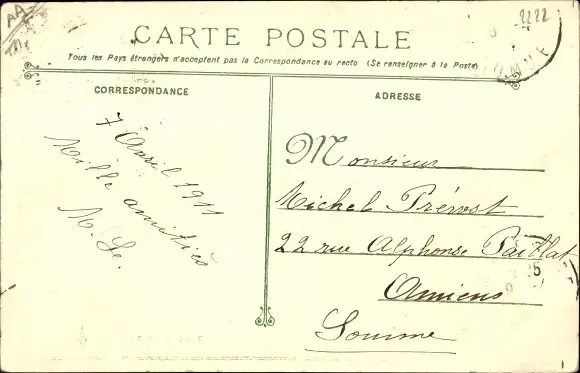 2222
CARTE POSTALE
Tous les Pays étrangers n'acceptent pas la Correspondance au recto (Se renseigner à la Poste)
CORRESPONDANCE
7 Avril 1911
Mille amitiés
M. Le.
ADRESSE
Monsieur
Michel Prévost
22 rue Alphonse Paillat
Amiens
Somme